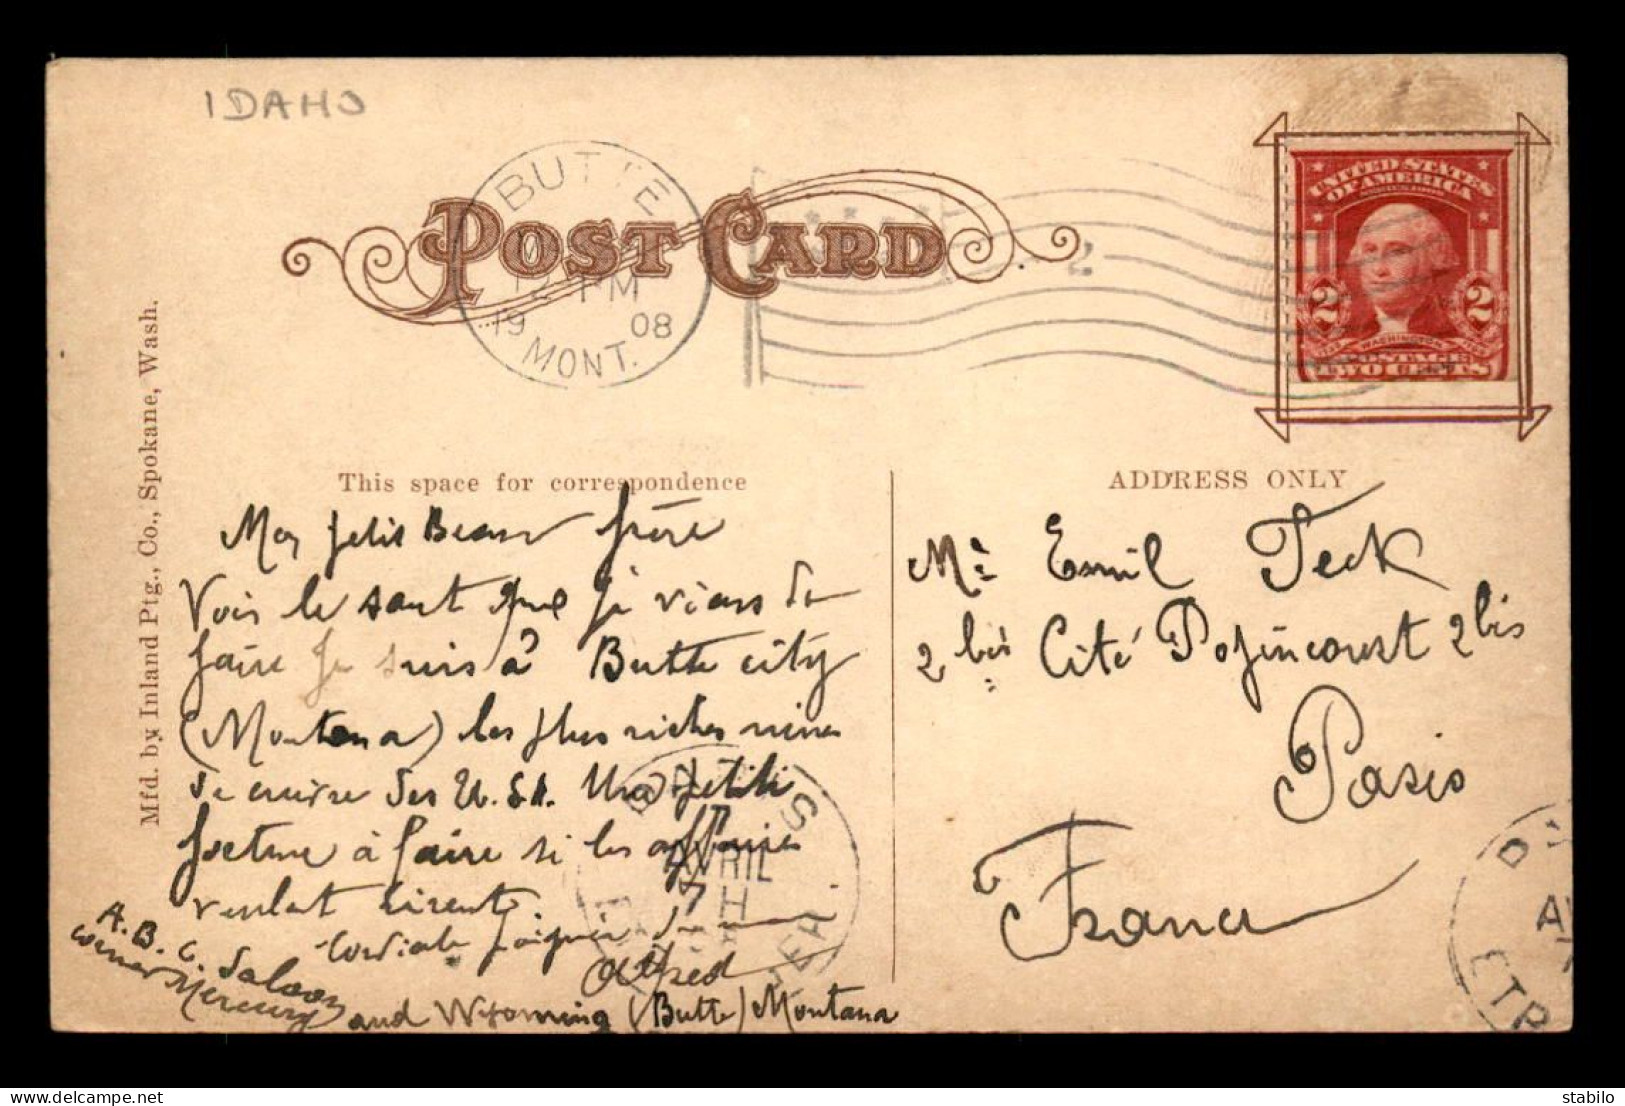 IDAHO
BUTTE
12 PM
19 08
MONT.
POST CARD
2
UNITED STATES
OF AMERICA
2 2
WASHINGTON
POSTAGE
TWO CENTS
Mfd. by Inland Ptg., Co., Spokane, Wash.
This space for correspondence
ADDRESS ONLY
Mon petit Beau frère
Vois le saut que je viens de
faire je suis à Butte city
(Montana) les plus riches mines
de cuivre des U.S.A. Une petite
fortune à faire si les affaires
veulent
Cordiale poignée de main
Alfred
A.B.C. Saloon
corner Mercury
and Wyoming (Butte) Montana
Mr Emil Teck
2 bis Cité Popincourt 2 bis
Paris
France
PARIS
AVRIL
7 H
ETR